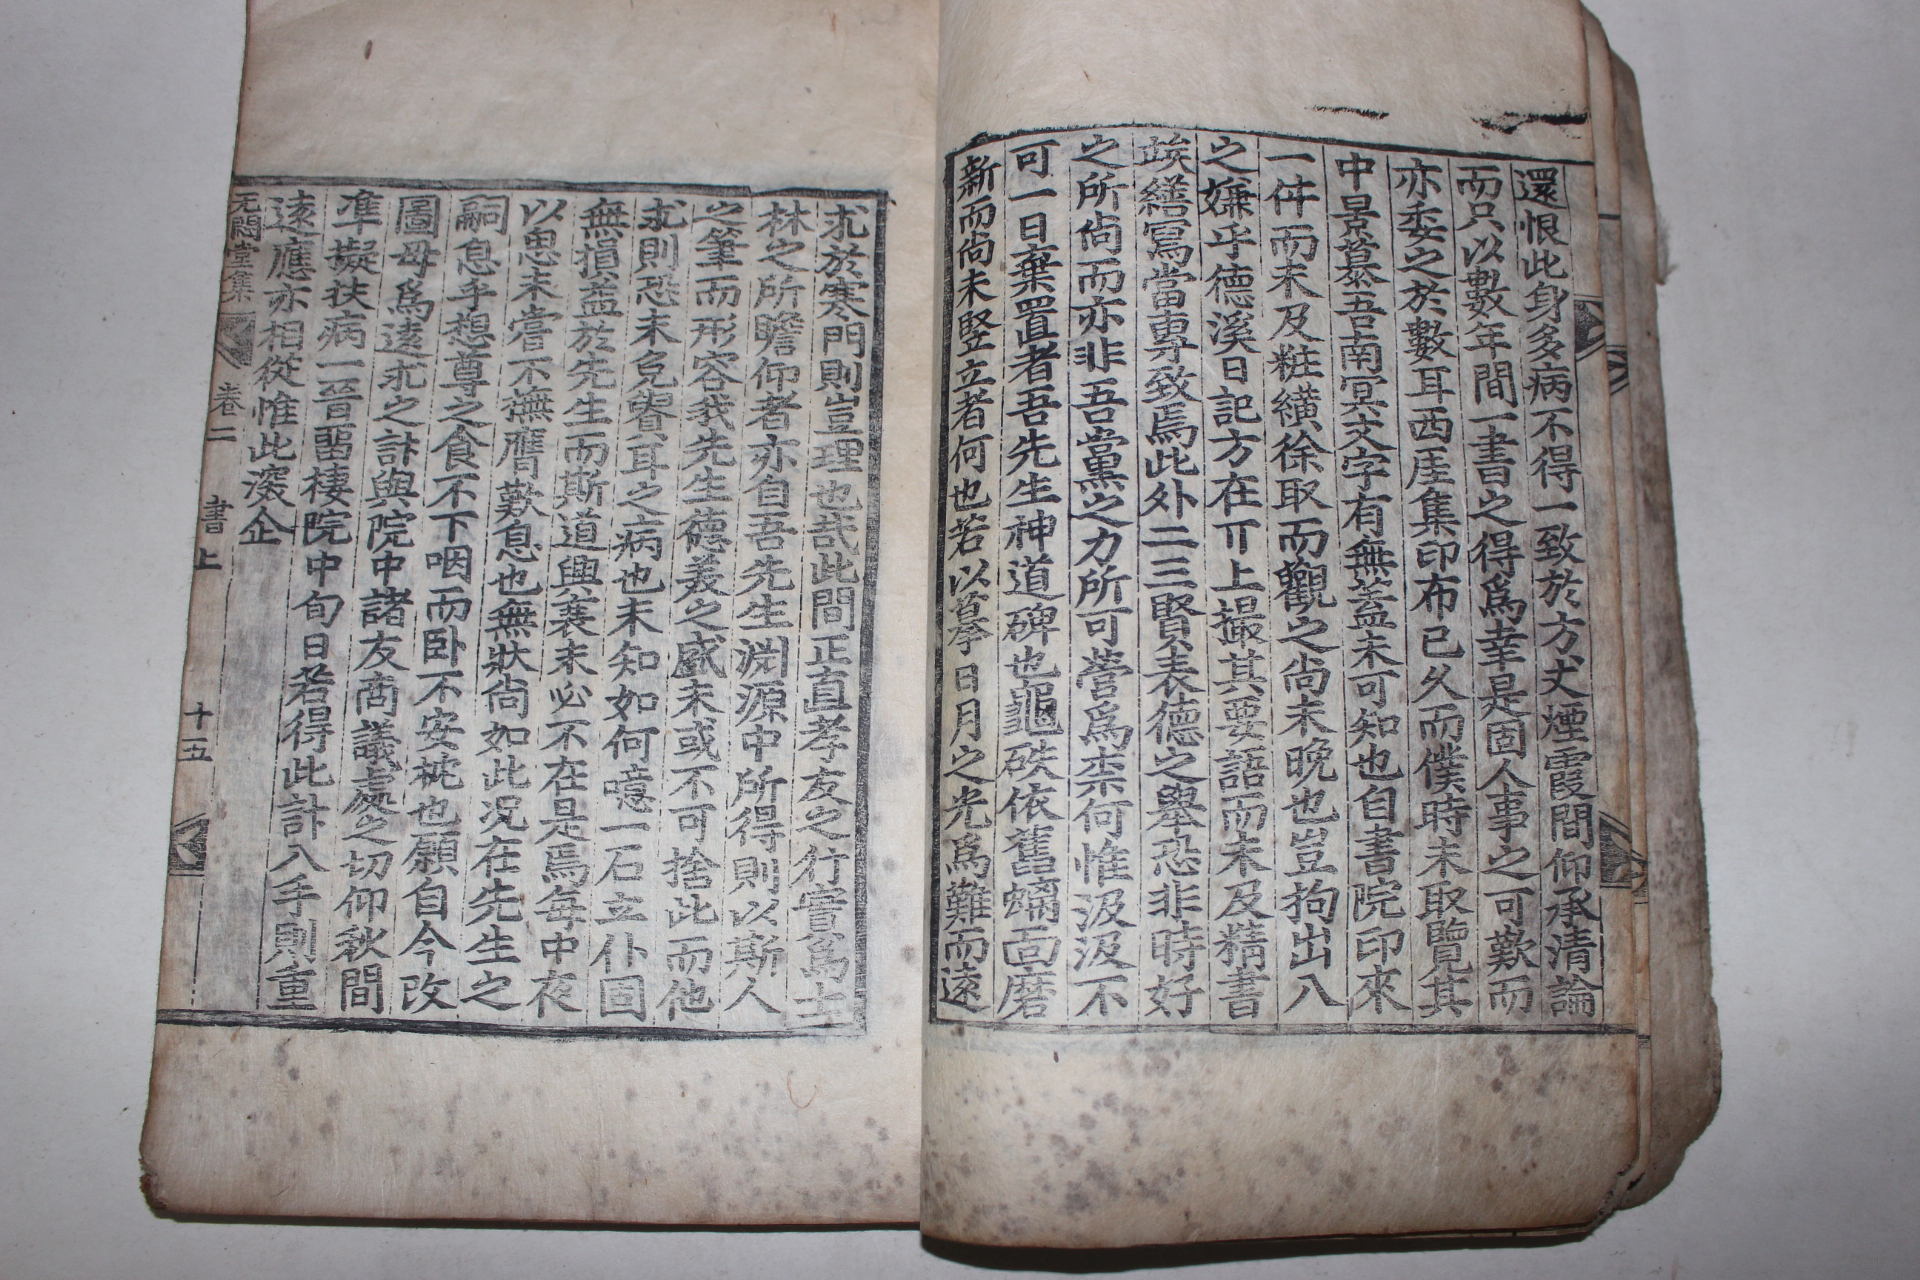 還恨此身多病不得一致於方丈煙霞間仰承清論
而只以數年間一書之得爲幸是固人事之可歎而
亦委之於數耳西厓集印布已久而僕時未取覽其
中景慕吾南冥文字有無盖未可知也自書院印來
一件而未及粧䌙徐取而觀之尚未晩也豈拘出入
之嫌乎德溪日記方在丌上撮其要語而未及精書
竢繕寫當專致焉此外二三賢表德之舉恐非時好
之所尙而亦非吾黨之力所可營爲柰何惟汲汲不
可一日棄置者吾先生神道碑也龜趺依舊螭面磨
新而尙未竪立者何也若以摹日月之光爲難而遠
求於寒門則豈理也哉此間正直孝友之行實爲士
林之所瞻仰者亦自吾先生淵源中所得則以斯人
之筆而形容我先生德義之盛未或不可捨此而他
求則恐未免騎驢耳之病也未知如何噫一石立仆固
無損益於先生而斯道興衰未必不在是焉每中夜
以思未嘗不撫膺歎息也無狀尙如此况在先生之
嗣息乎想尊之食不下咽而卧不安枕也願自今改
圖毋爲遠求之計與院中諸友商議處之切仰秋間
准擬扶病一晉留棲院中旬日若得此計入手則重
遠應亦相從惟此深企
无悶堂集 卷二 書上 十五